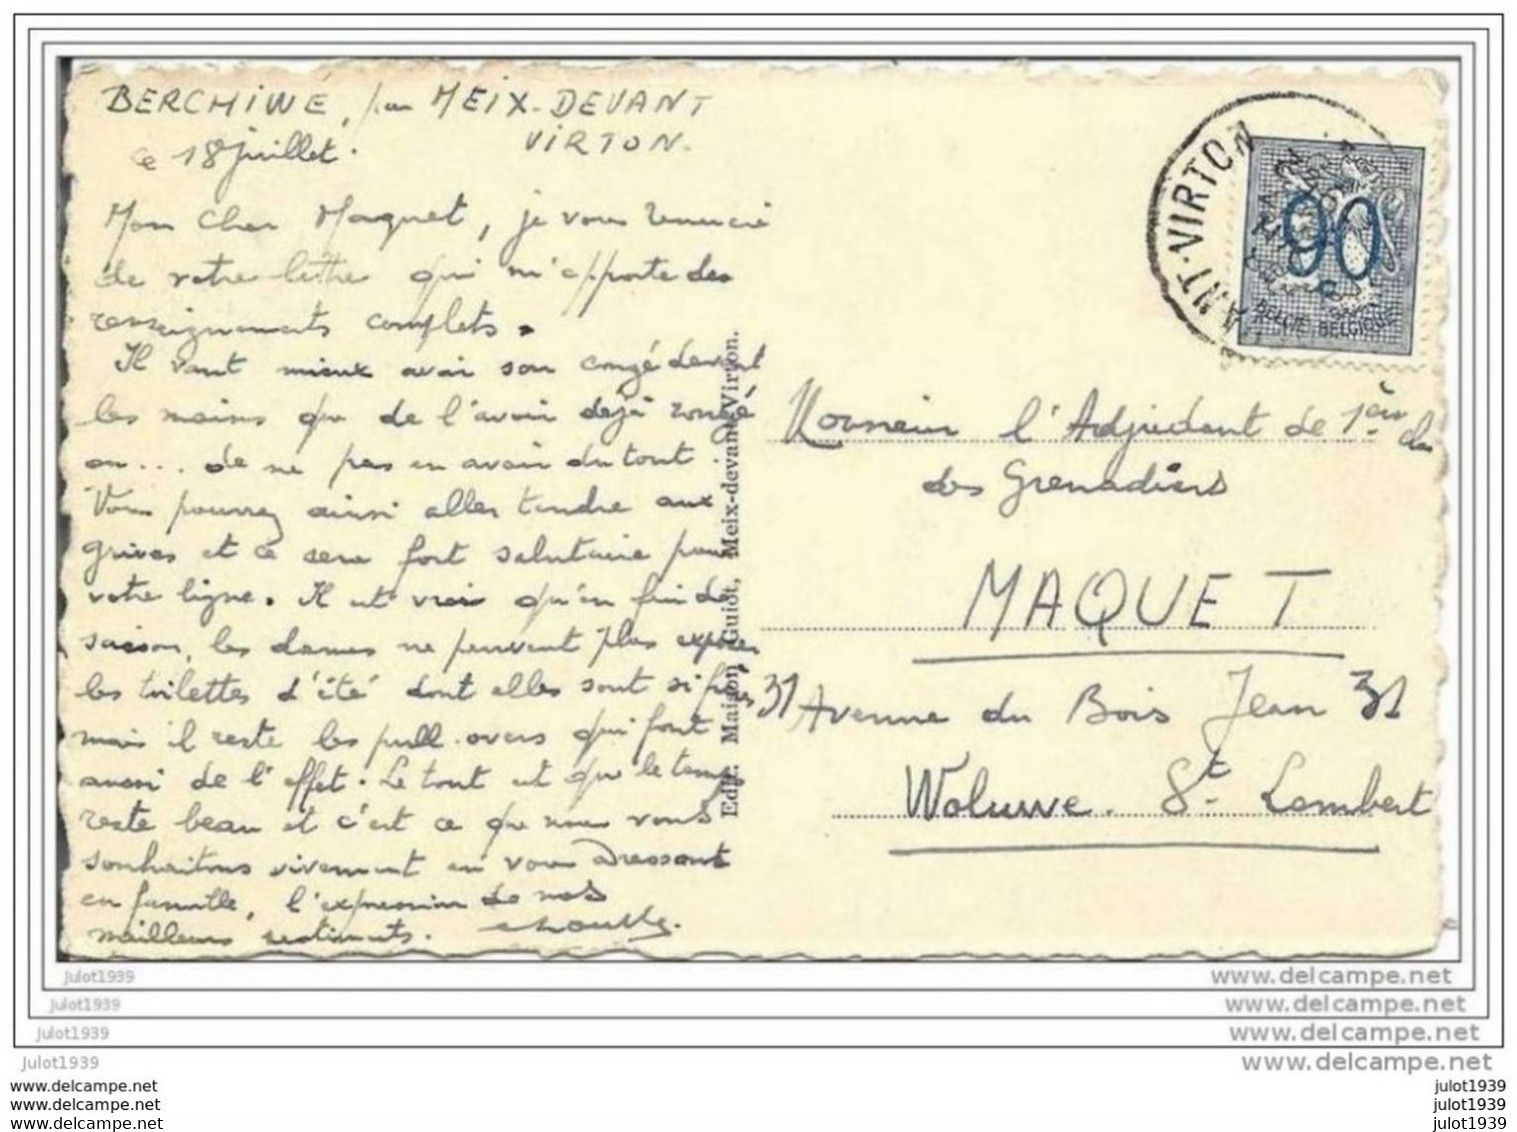 BERCHIWE, par MEIX-DEVANT
VIRTON.
ce 18 juillet.
Mon Cher Maquet, je vous remercie
de votre lettre qui m'apporte des
renseignements complets.
Il vaut mieux avoir son congé devant
les mains que de l'avoir déjà rongé
ou... de ne pas en avoir du tout.
Vous pourrez ainsi aller tendre aux
grives et ce sera fort salutaire pour
votre ligne. Il est vrai qu'en fin de
saison, les dames ne peuvent plus exposer
les toilettes d'été dont elles sont si fières
mais il reste les pull-overs qui font
aussi de l'effet. Le tout est que le temps
reste beau et c'est ce que nous vous
souhaitons vivement en vous adressant
en famille, l'expression de nos
meilleurs sentiments.
Edit. Maison Guiot, Meix-devant-Virton.
ANT-VIRTON
90
c
BELGIE BELGIQUE
Monsieur l'Adjudant de 1ère cl.
des Grenadiers
MAQUET
31 Avenue du Bois Jean 31
Woluwe. St. Lambert
julot1939 www.delcampe.net
julot1939 www.delcampe.net
julot1939 www.delcampe.net
julot1939 www.delcampe.net
www.delcampe.net julot1939
www.delcampe.net julot1939
www.delcampe.net julot1939